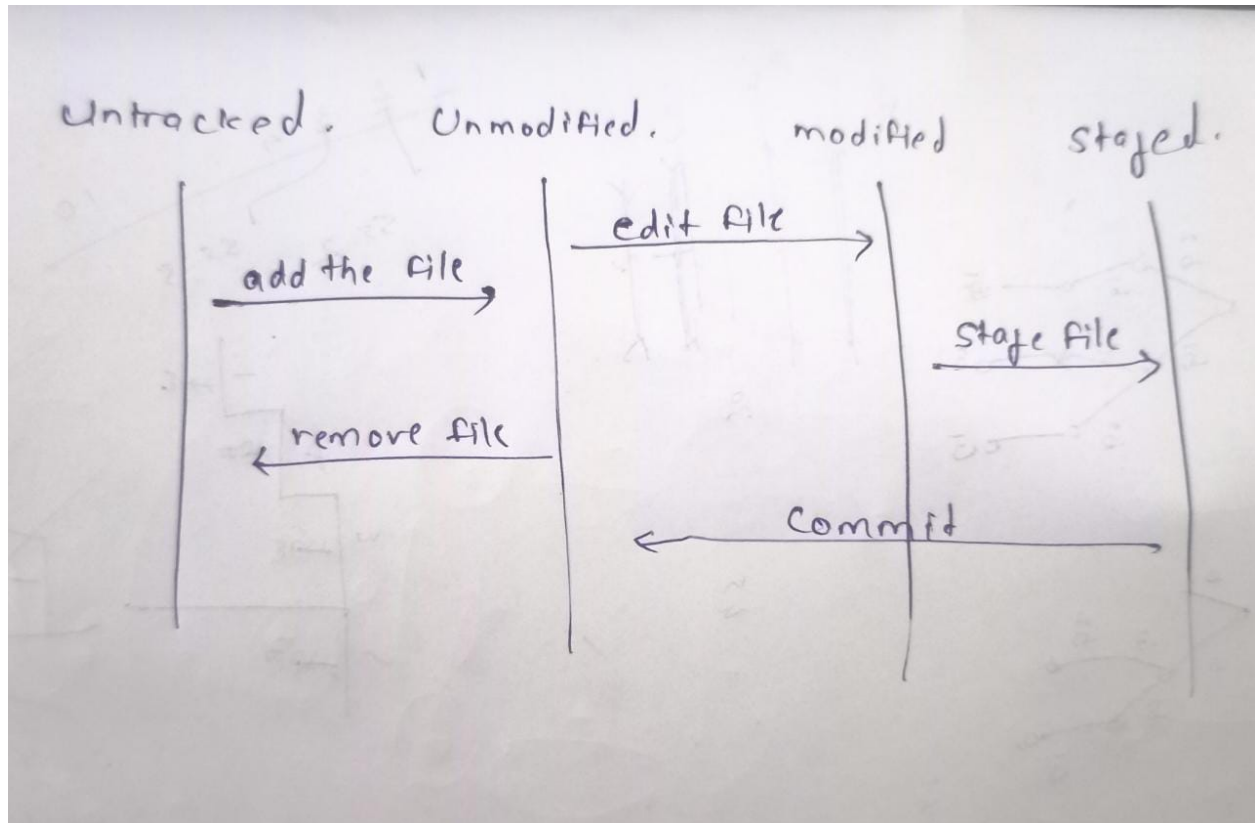 Untracked. Unmodified. modified staged.
edit file
add the file
stage file
remove file
Commit